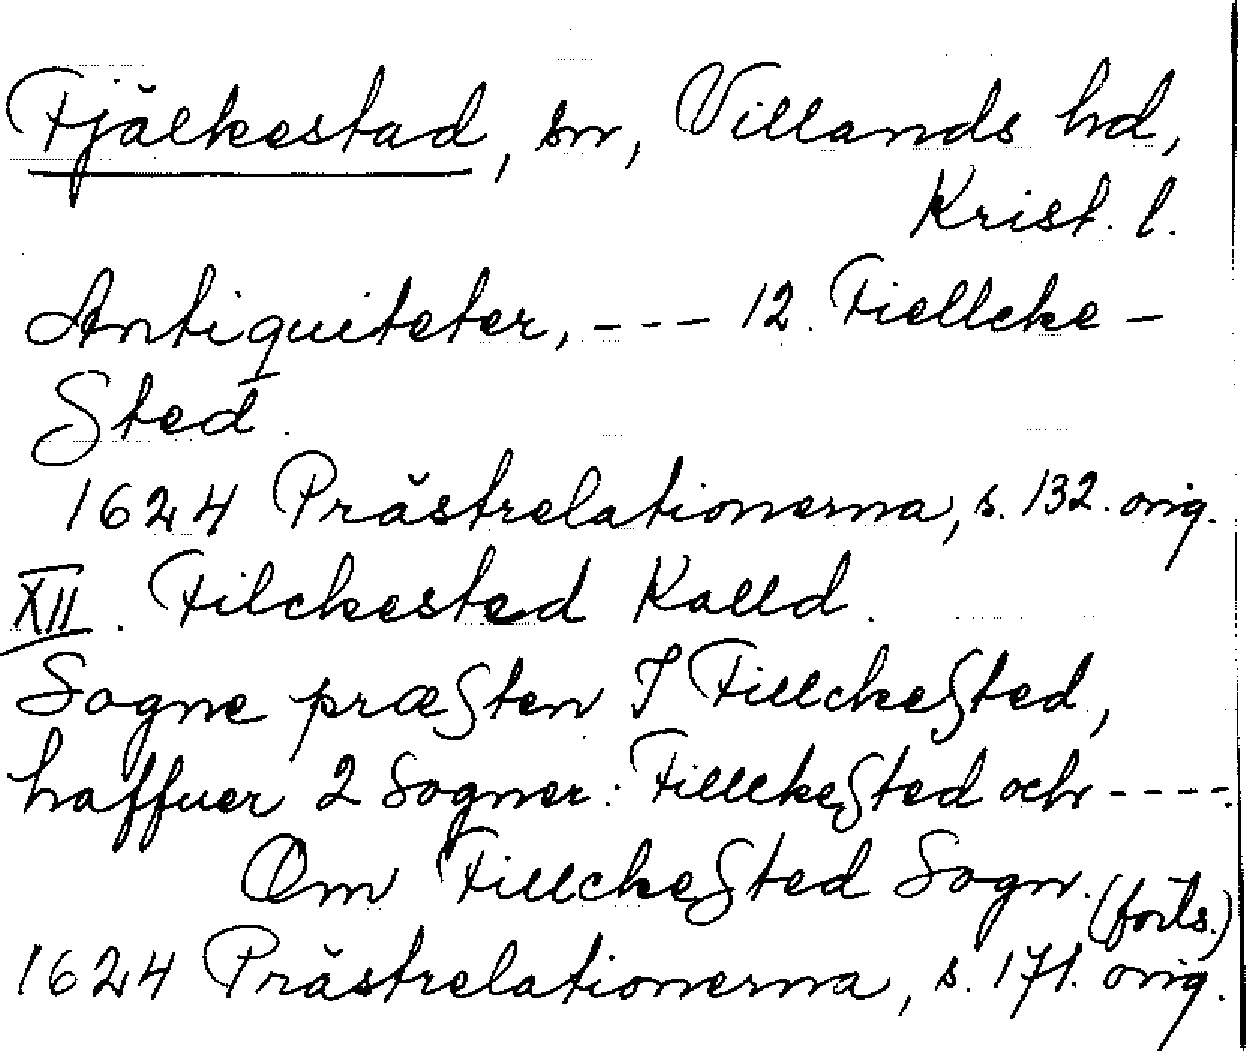 Fjälkestad, sn, Villands hd,
Krist. l.
Antiquiteter, --- 12. Fiellcke-
Sted.
1624 Prästrelationerna, s. 132. orig.
XII. Filckested Kalld.
Sogne præsten I Fillckested,
haffuer 2 Sogner: Fillckested och ----.
Om Fillckested Sogn. (forts.)
1624 Prästrelationerna, s. 171. orig.